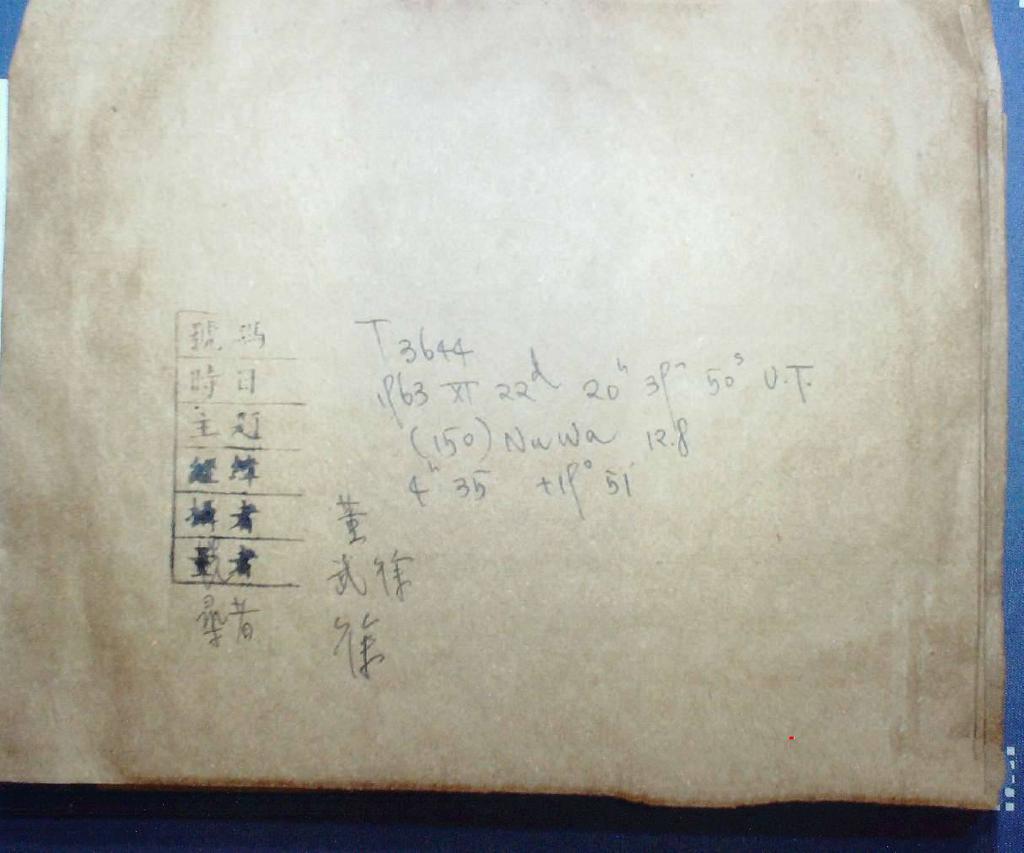 號碼 T 3644
時日 1963 XI 22d 20h 39m 50s U.T.
主題 (150) NuWa 12.8
經緯 4h 35 +19° 51
攝者 董
量者 武 徐
尋者 徐